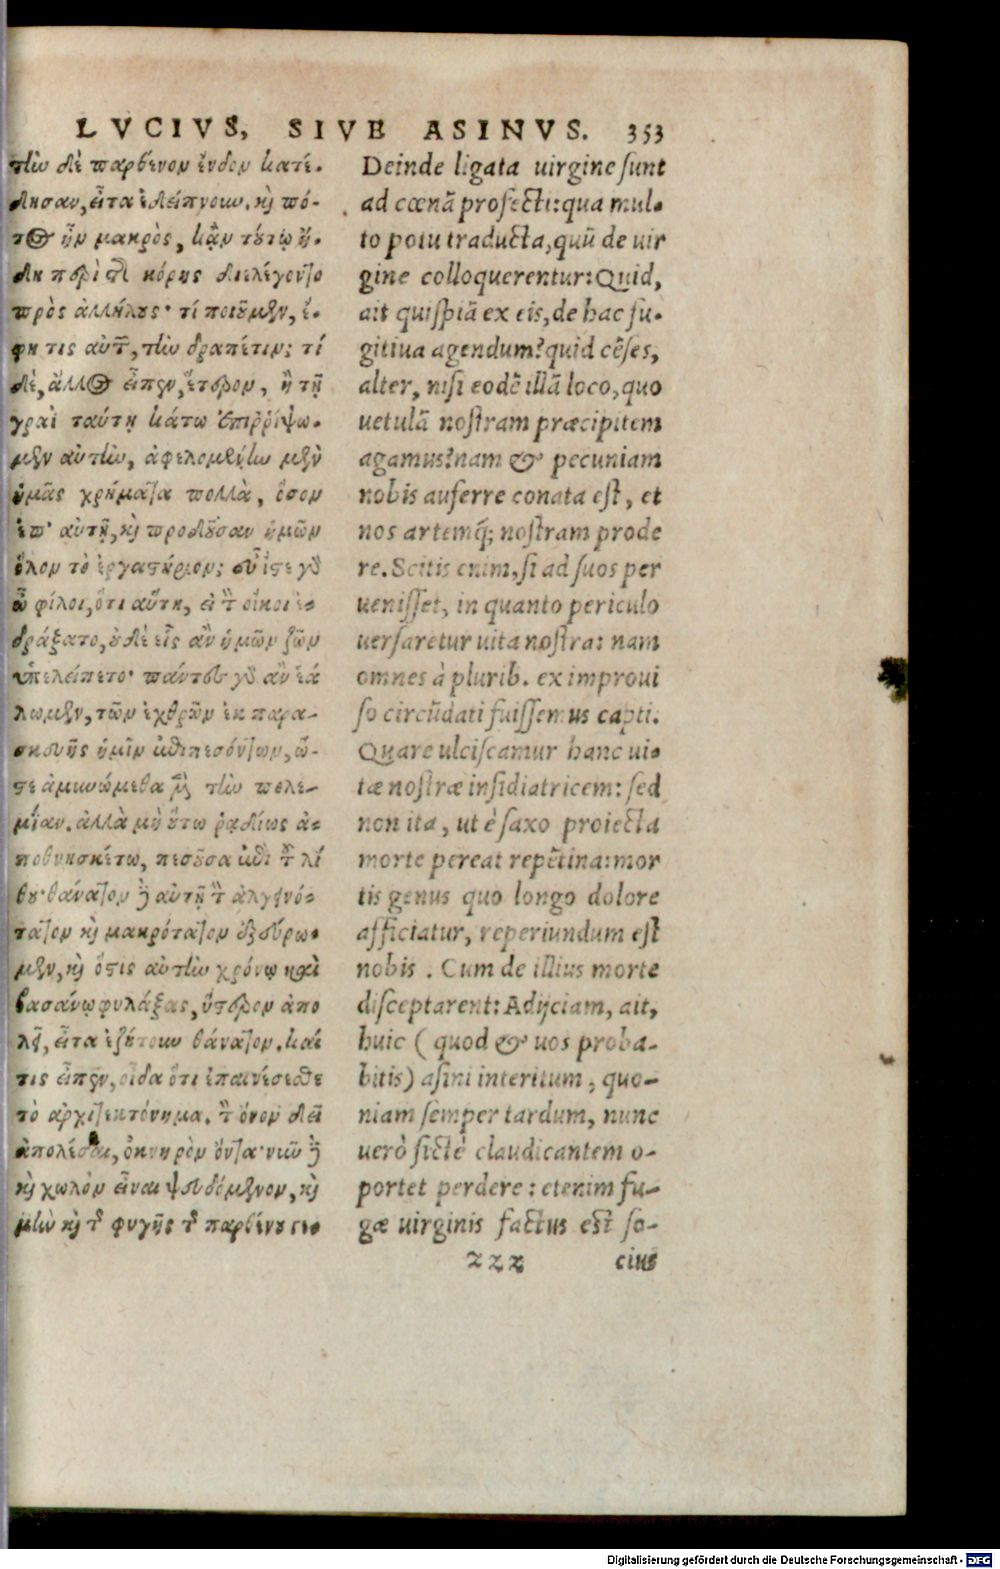 LVCIVS, SIVE ASINVS. 353
τὴν δὲ παρθένον ἔνδον κατέ-
δησαν, εἶτα ἐδείπνουν. καὶ πό-
τος ἦν μακρὸς, κἀν τούτῳ ἤ-
δη περὶ τῆς κόρης διελέγοντο
πρὸς ἀλλήλους· τί ποιοῦμεν, ἔ-
φη τις αὐτῶν, τὴν δραπέτιν; τί
δὲ, ἄλλος εἶπεν, ἕτερον, ἢ τῇ
γραῒ ταύτῃ κάτω ἐπιῤῥίψω-
μεν αὐτὴν, ἀφελομένην μὲν
ὑμᾶς χρήματα πολλὰ, ὅσον
ἐπ' αὐτῇ, καὶ προδοῦσαν ἡμῶν
ὅλον τὸ ἐργαστήριον; εὖ ἴστε γὸ
ὦ φίλοι, ὅτι αὕτη, εἰ τ οἴκοι ἐ-
δράξατο, οὐδὲ εἷς ἂν ἡμῶν ζῶν
ὑπελείπετο· πάντες γὸ ἂν ἑά
λωμεν, τῶν ἐχθρῶν ἐκ παρα-
σκευῆς ἡμῖν ἐπιπεσόντων, ὥ-
στε ἀμυνώμεθα μὲν τὴν πολε-
μίαν. ἀλλὰ μὴ οὕτω ῥαδίως ἀ-
ποθνησκέτω, πεσοῦσα ἐπὶ τ λί
θου· θάνατον δὲ αὐτῇ τ ἀλγεινό-
τατον καὶ μακρότατον ἐξεύρω-
μεν, καὶ ὅστις αὐτὴν χρόνῳ καὶ
βασάνῳ φυλάξας, ὕστερον ἀπο
λεῖ, εἶτα ἐζήτουν θάνατον. καί
τις εἶπεν, οἶδα ὅτι ἐπαινέσεσθε
τὸ ἀρχιτεκτόνημα. τ ὄνον δεῖ
ἀπολέσαι, ὀκνηρὸν ὄντα· νῦν δὲ
καὶ χωλὸν εἶναι ψευδόμενον, καὶ
μὴν καὶ τ φυγῆς τ παρθένου γενό
Deinde ligata uirgine sunt
ad cœnã profecti: qua mul-
to potu traducta, quũ de uir
gine colloquerentur: Quid,
ait quispiã ex eis, de hac fu-
gitiua agendum? quid cẽses,
alter, nisi eodẽ illã loco, quo
uetulã nostram præcipitem
agamus? nam & pecuniam
nobis auferre conata est, et
nos artemq́; nostram prode
re. Scitis enim, si ad suos per
uenisset, in quanto periculo
uersaretur uita nostra: nam
omnes à plurib. ex improui
so circũdati fuissemus capti.
Quare ulciscamur hanc ui-
tæ nostræ insidiatricem: sed
non ita, ut è saxo proiecta
morte pereat repẽtina: mor
tis genus quo longo dolore
afficiatur, reperiundum est
nobis. Cum de illius morte
disceptarent: Adijciam, ait,
huic ( quod & uos proba-
bitis) asini interitum, quo-
niam semper tardum, nunc
uerò fictè claudicantem o-
portet perdere: etenim fu-
gæ uirginis factus est so-
zzz cius
Digitalisierung gefördert durch die Deutsche Forschungsgemeinschaft - DFG